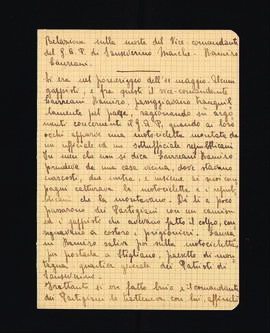 Relazione sulla morte del Vice-comandante
del G.A.P. di Sanseverino Marche - Ramiro
Laureani.
Si era nel pomeriggio dell' maggio. Alcuni
gappisti, e fra questi il vice-comandante
Laureani Ramiro, passeggiavano tranquil
lamente pel paese, ragionando su argo
menti concernenti il G.A.P., quando ai loro
occhi apparve una motocicletta montata da
un ufficiale ed un sottufficiale repubblicani.
In men che non si dica Laureani Ramiro
prendeva da una casa vicina, dove stavano
nascosti, dei mitra, e insieme ai suoi com
pagni catturava la motocicletta e i repub
blicani che la montavano. Di lì a poco
passarono dei Partigiani con un camion
e i gappisti che avevano fatto il colpo, con
segnavano a costoro i prigionieri. Laurea
ni Ramiro saliva poi sulla motocicletta
per portarla a Stigliano, paesetto di mon
tagna, quartier generale dei Patrioti di
Sanseverino.
Frattanto si era fatto buio e il comandante
dei Partigiani lo tratteneva con lui, affinché